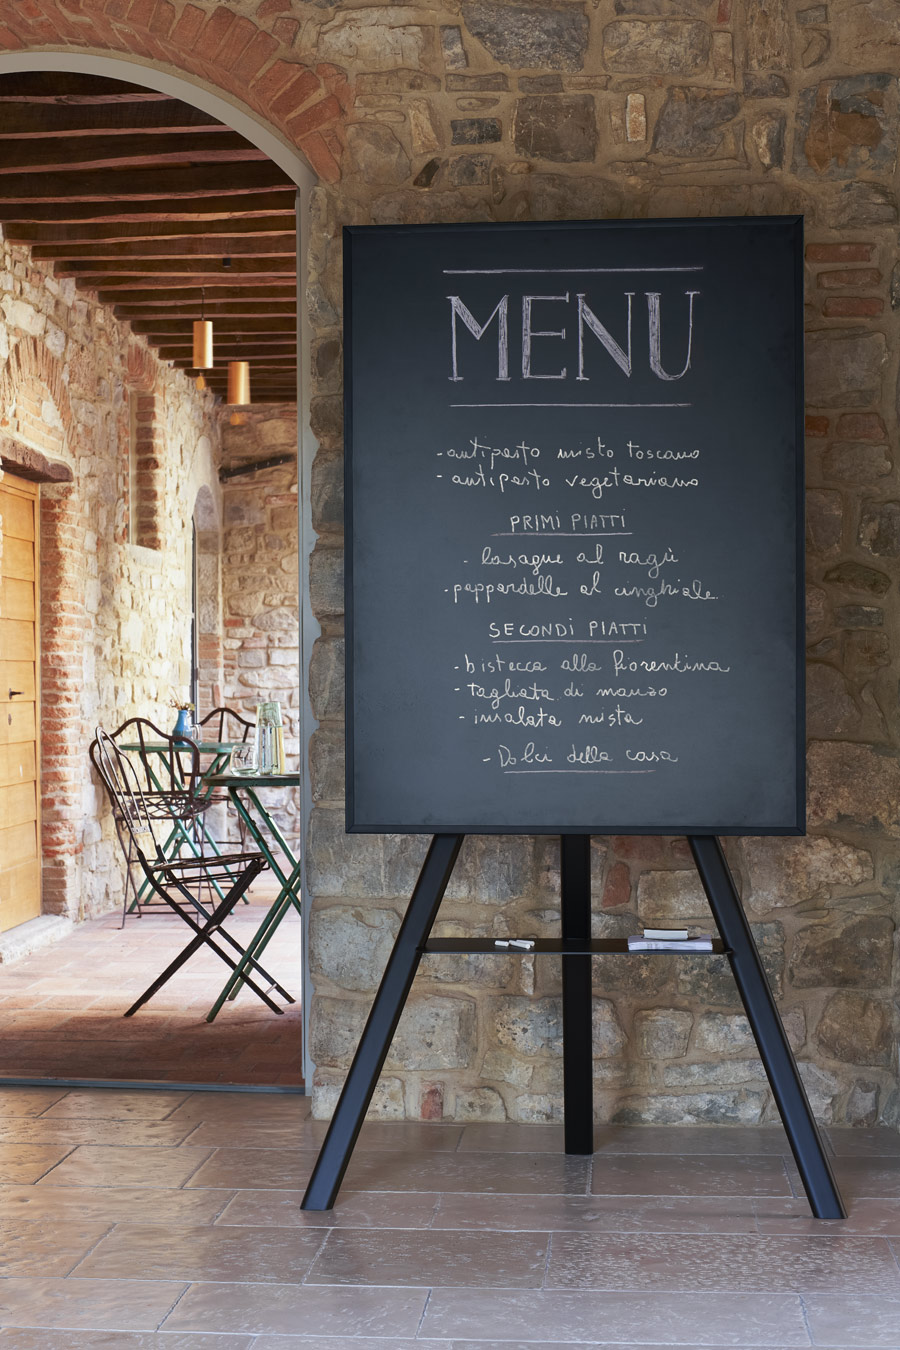 MENU
- antipasto misto toscano
- antipasto vegetariano
PRIMI PIATTI
- lasagne al ragù
- pappardelle al cinghiale.
SECONDI PIATTI
- bistecca alla fiorentina
- tagliata di manzo
- insalata mista
- Dolci della casa